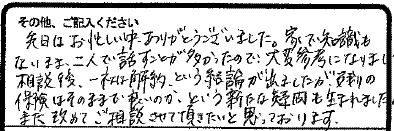 その他、ご記入ください
先日はお忙しい中ありがとうございました。家で知識も
ないまま、二人で話すことが多かったので、大変参考になりまし
相談後、一社は解約、という結論が出ましたが、更新の
保険はそのままで良いのか、という新たな疑問も生まれました。
また改めてご相談させて頂きたいと思っております。